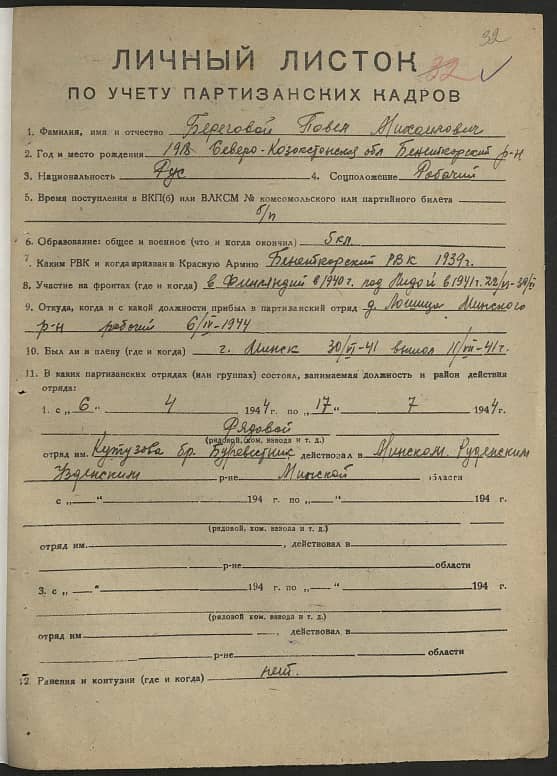 32
ЛИЧНЫЙ ЛИСТОК 32
ПО УЧЕТУ ПАРТИЗАНСКИХ КАДРОВ
1. Фамилия, имя и отчество Береговой Павел Михаилович
2. Год и место рождения 1918 Северо-Казахстонская обл р-н
3. Национальность Рус 4. Соцположение Рабочий
5. Время поступления в ВКП(б) или ВЛКСМ № комсомольского или партийного билета
б/п
6. Образование: общее и военное (что и когда окончил) 5 кл
7. Каким РВК и когда призван в Красную Армию РВК 1939 г.
8. Участие на фронтах (где и когда) в Финляндий в 1940 г. под Лидой в 1941 г. 22/VI-30/VI
9. Откуда, когда и с какой должности прибыл в партизанский отряд д. Лошица Минского
р-н рабочий 6/IV-1944
10. Был ли в плену (где и когда) г. Минск 30/VI-41 вышол 11/VII-41 г.
11. В каких партизанских отрядах (или группах) состоял, занимаемая должность и район действия
отряда:
1. с „6" 4 1944 г. по „17" 7 1944 г.
Рядовой
(рядовой, ком. взвода и т. д.)
отряд им. Кутузова бр. Буревестник действовал в Минском. Руденским
Узденским р-не Минской области
с „ " 194 г. по „ " 194 г.
(рядовой, ком. взвода и т. д.)
отряд им. , действовал в
р-не области
3. с „ " 194 г. по „ " 194 г.
(рядовой ком. взвода и т. д.)
отряд им , действовал в
р-не области
12. Ранения и контузии (где и когда) нет.